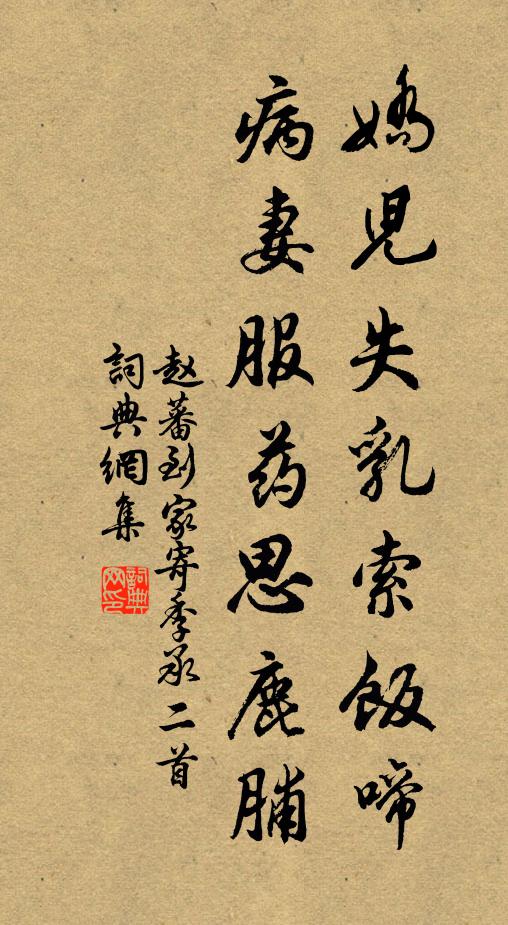 娇児失乳索飯啼
病妻服药思鹿脯
赵蕃到家寄季承二首
詞典網集
詞典网印